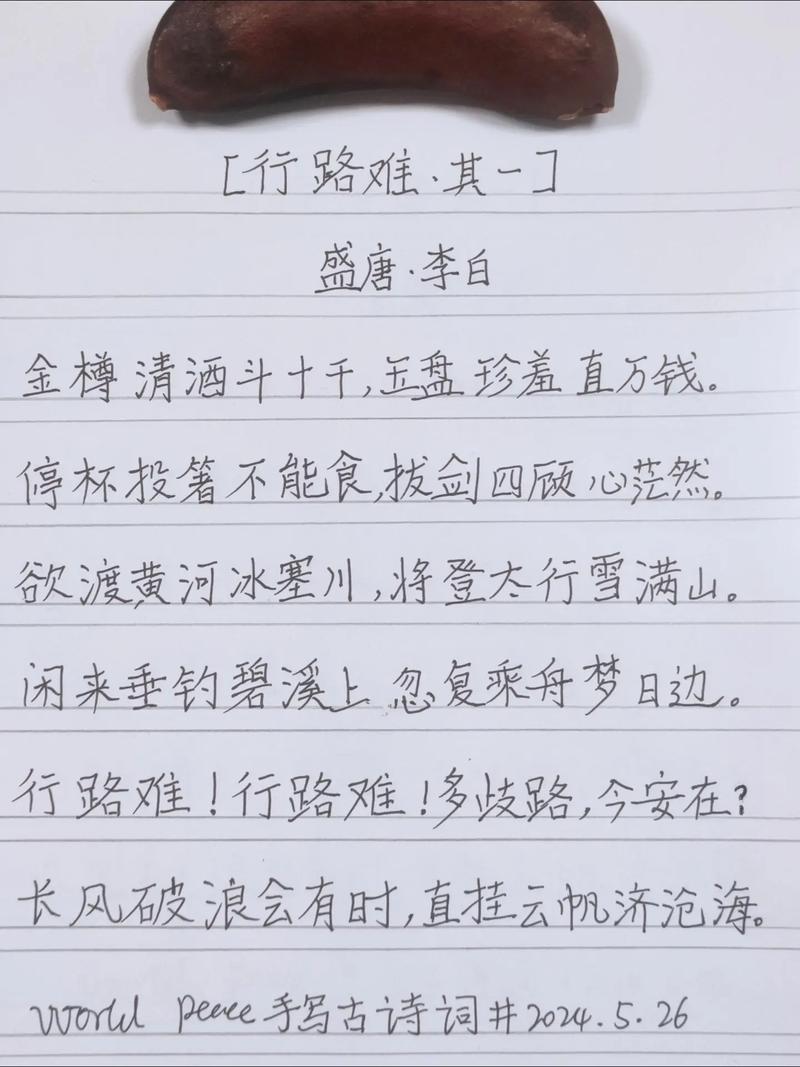 [行路难·其一]
盛唐·李白
金樽清酒斗十千,玉盘珍羞直万钱。
停杯投箸不能食,拔剑四顾心茫然。
欲渡黄河冰塞川,将登太行雪满山。
闲来垂钓碧溪上 忽复乘舟梦日边。
行路难!行路难!多歧路,今安在?
长风破浪会有时,直挂云帆济沧海。
World peace手写古诗词#2024.5.26